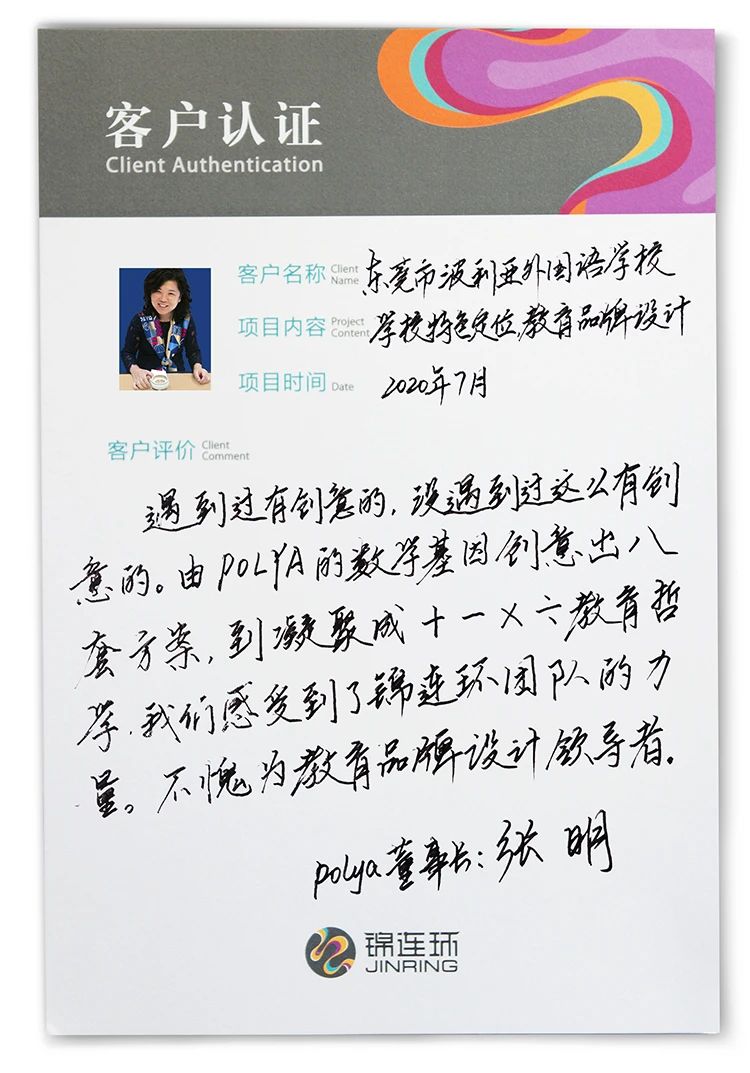 客户认证
Client Authentication
客户名称 Client Name 东莞市波利亚外国语学校
项目内容 Project Content 学校特色定位,教育品牌设计
项目时间 Date 2020年7月
客户评价 Client Comment
遇到过有创意的,没遇到过这么有创
意的。由POLYA的数学基因创意出八
套方案,到凝聚成十一×六教育哲
学,我们感受到了锦连环团队的力
量。不愧为教育品牌设计领导者。
polya董事长:张明
锦连环
JINRING